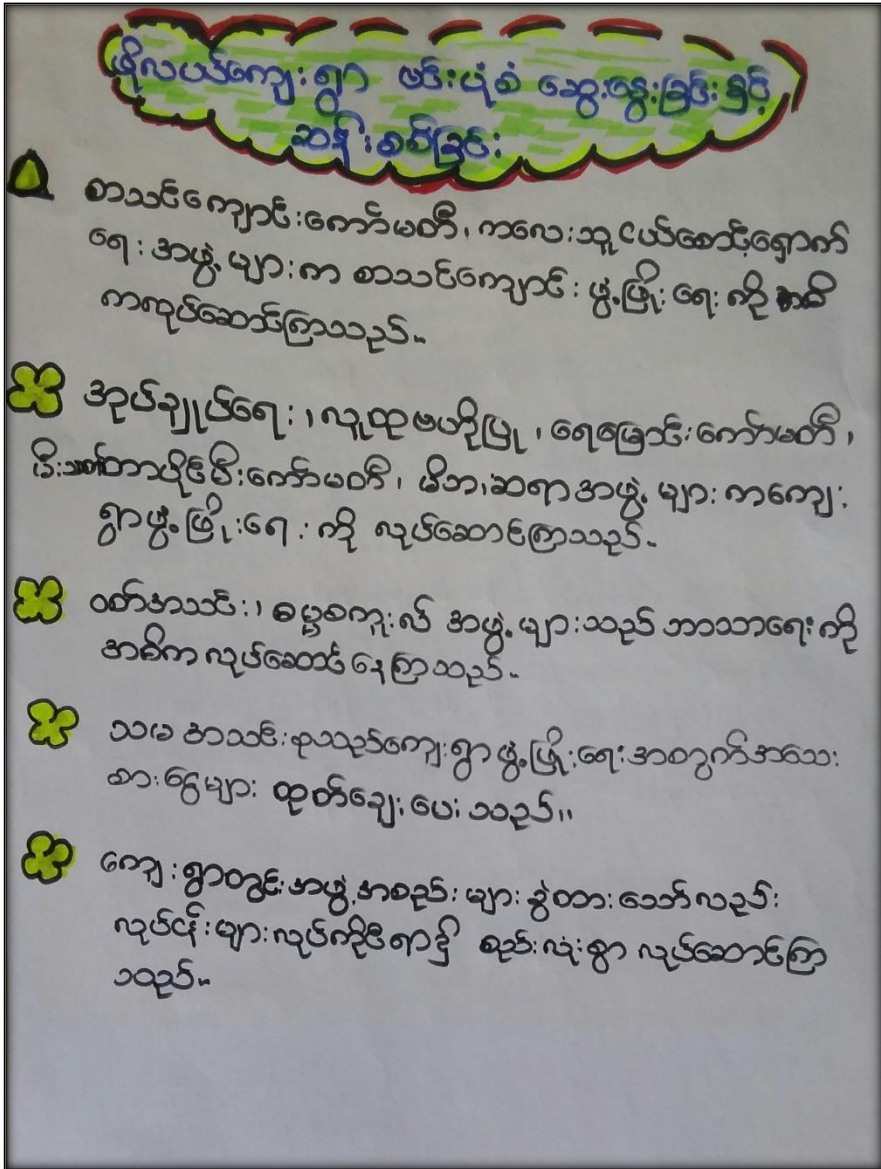 ဖိုလပယ်ကျေးရွာ ဗင်းပုံစံ ဆွေးနွေးခြင်းနှင့်
ဆန်းစစ်ခြင်း
စာသင်ကျောင်းကော်မတီ၊ ကလေးသူငယ်စောင့်ရှောက်
ရေး အဖွဲ့များက စာသင်ကျောင်း ဖွံ့ဖြိုးရေး ကို အဓိ
ကလုပ်ဆောင်ကြသည်။
အုပ်ချုပ်ရေး၊ လူထုဗဟိုပြု၊ ရေမြောင်းကော်မတီ၊
မီးသတ်တာပိုင်မီးကော်မတီ၊ မိဘ၊ဆရာအဖွဲ့များ ကကျေး
ရွာဖွံ့ဖြိုးရေး ကို လုပ်ဆောင်ကြသည်။
ဝတ်အသင်း၊ ဓမ္မစကူးလ် အဖွဲ့များသည် ဘာသာရေးကို
အဓိက လုပ်ဆောင်နေကြသည်။
သမ အသင်းစုသည်ကျေးရွာဖွံ့ဖြိုးရေးအတွက်အသေး
စားငွေများ ထုတ်ချေးပေးသည်။
ကျေးရွာတွင်းအဖွဲ့အစည်းများ ခွဲထားသော်လည်း
လုပ်ငန်းများလုပ်ကိုင်ရာ၌ စည်းလုံးစွာ လုပ်ဆောင်ကြ
သည်။